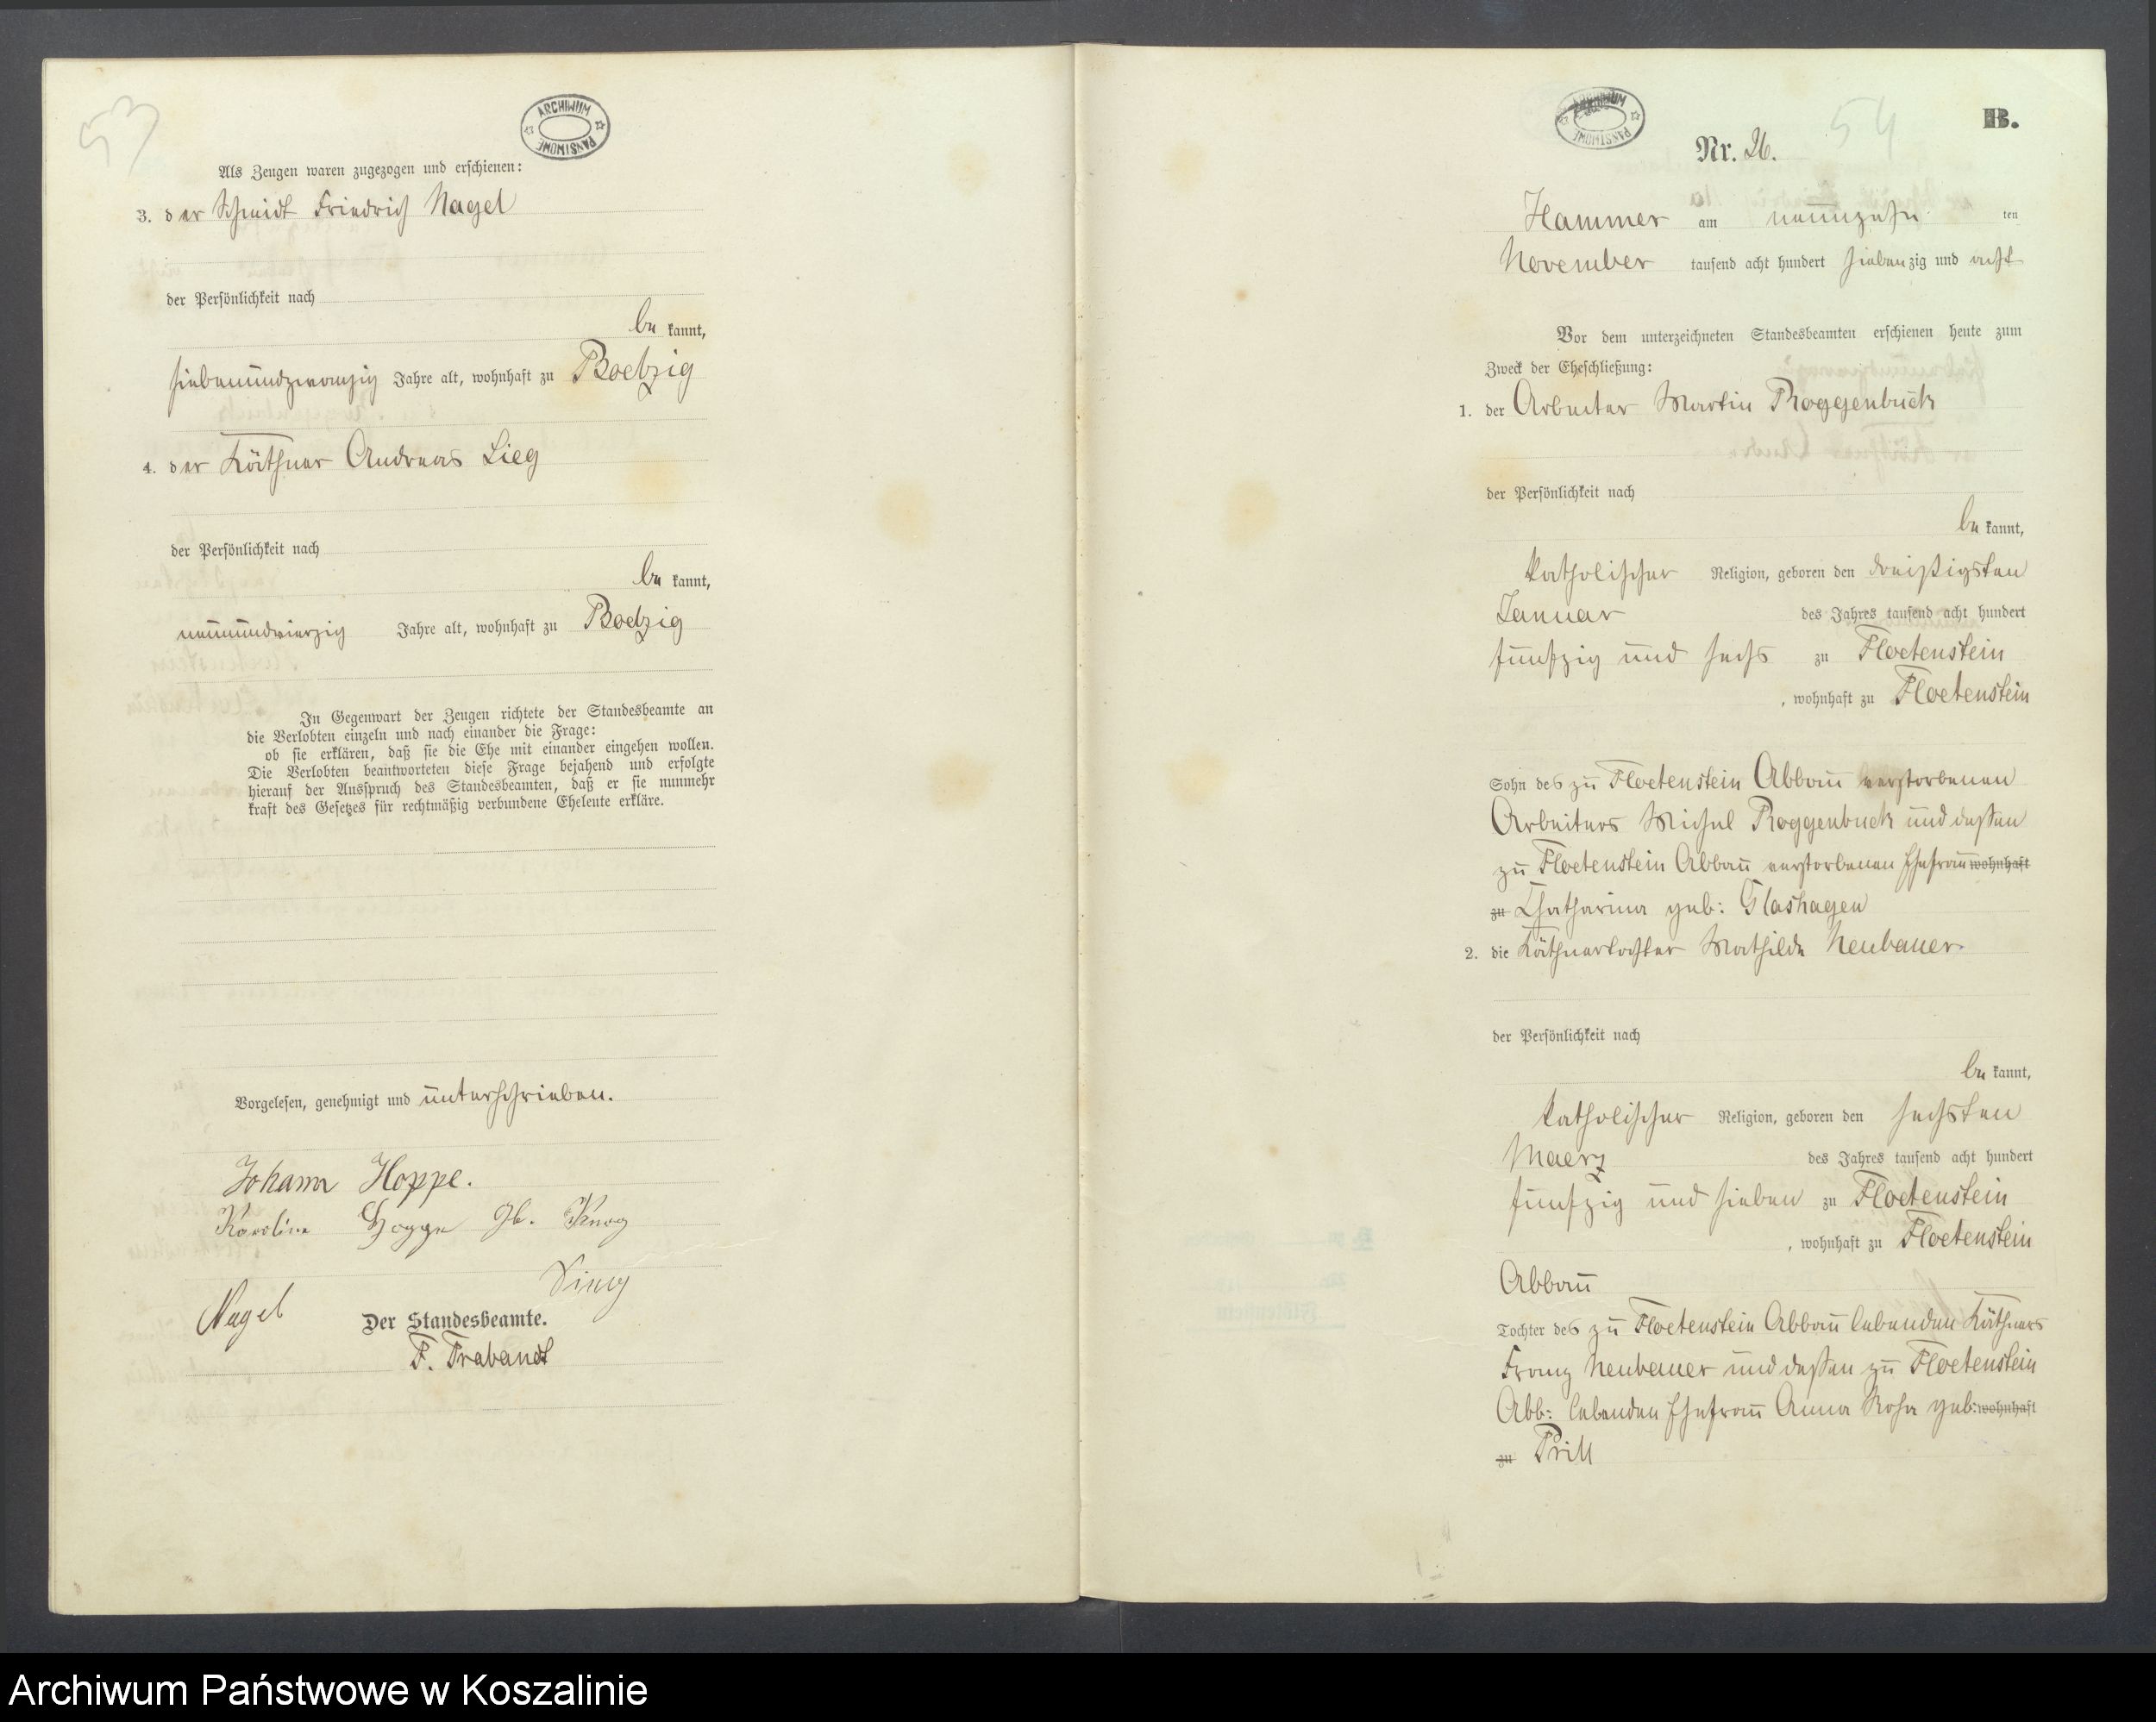 53
ARCHIWUM
PAŃSTWOWE
Als Zeugen waren zugezogen und erschienen:
3. der Schmidt Friedrich Nagel
der Persönlichkeit nach
be kannt,
siebenundzwanzig Jahre alt, wohnhaft zu Roetzig
4. der Käthner Andreas Lieg
der Persönlichkeit nach
be kannt,
neunundvierzig Jahre alt, wohnhaft zu Roetzig
In Gegenwart der Zeugen richtete der Standesbeamte an
die Verlobten einzeln und nach einander die Frage:
ob sie erklären, daß sie die Ehe mit einander eingehen wollen.
Die Verlobten beantworteten diese Frage bejahend und erfolgte
hierauf der Ausspruch des Standesbeamten, daß er sie nunmehr
kraft des Gesetzes für rechtmäßig verbundene Eheleute erkläre.
Vorgelesen, genehmigt und unterschrieben.
Johann Hoppe.
Karoline Hoppe
Nagel
Der Standesbeamte.
F. Trabandt
54
B.
ARCHIWUM
PAŃSTWOWE
Nr. 26.
Hammer am neunzehn ten
November tausend acht hundert siebenzig und acht
Vor dem unterzeichneten Standesbeamten erschienen heute zum
Zweck der Eheschließung:
1. der Arbeiter Martin Roggenbuck
der Persönlichkeit nach
be kannt,
katholischer Religion, geboren den dreißigsten
Januar des Jahres tausend acht hundert
fünfzig und sechs zu Floetenstein
, wohnhaft zu Floetenstein
Sohn des zu Floetenstein Abbau verstorbenen
Arbeiters Michel Roggenbuck und deßen
zu Floetenstein Abbau verstorbenen Ehefrau wohnhaft
zu Chatharina geb: Glashagen
2. die Käthnertochter Mathilde Neubauer.
der Persönlichkeit nach
be kannt,
katholischer Religion, geboren den sechsten
Maerz des Jahres tausend acht hundert
fünfzig und sieben zu Floetenstein
, wohnhaft zu Floetenstein
Abbau
Tochter des zu Floetenstein Abbau lebenden Käthners
Franz Neubauer und deßen zu Floetenstein
Abb: lebenden Ehefrau Anna Rosa geb: wohnhaft
zu Prill
Archiwum Państwowe w Koszalinie